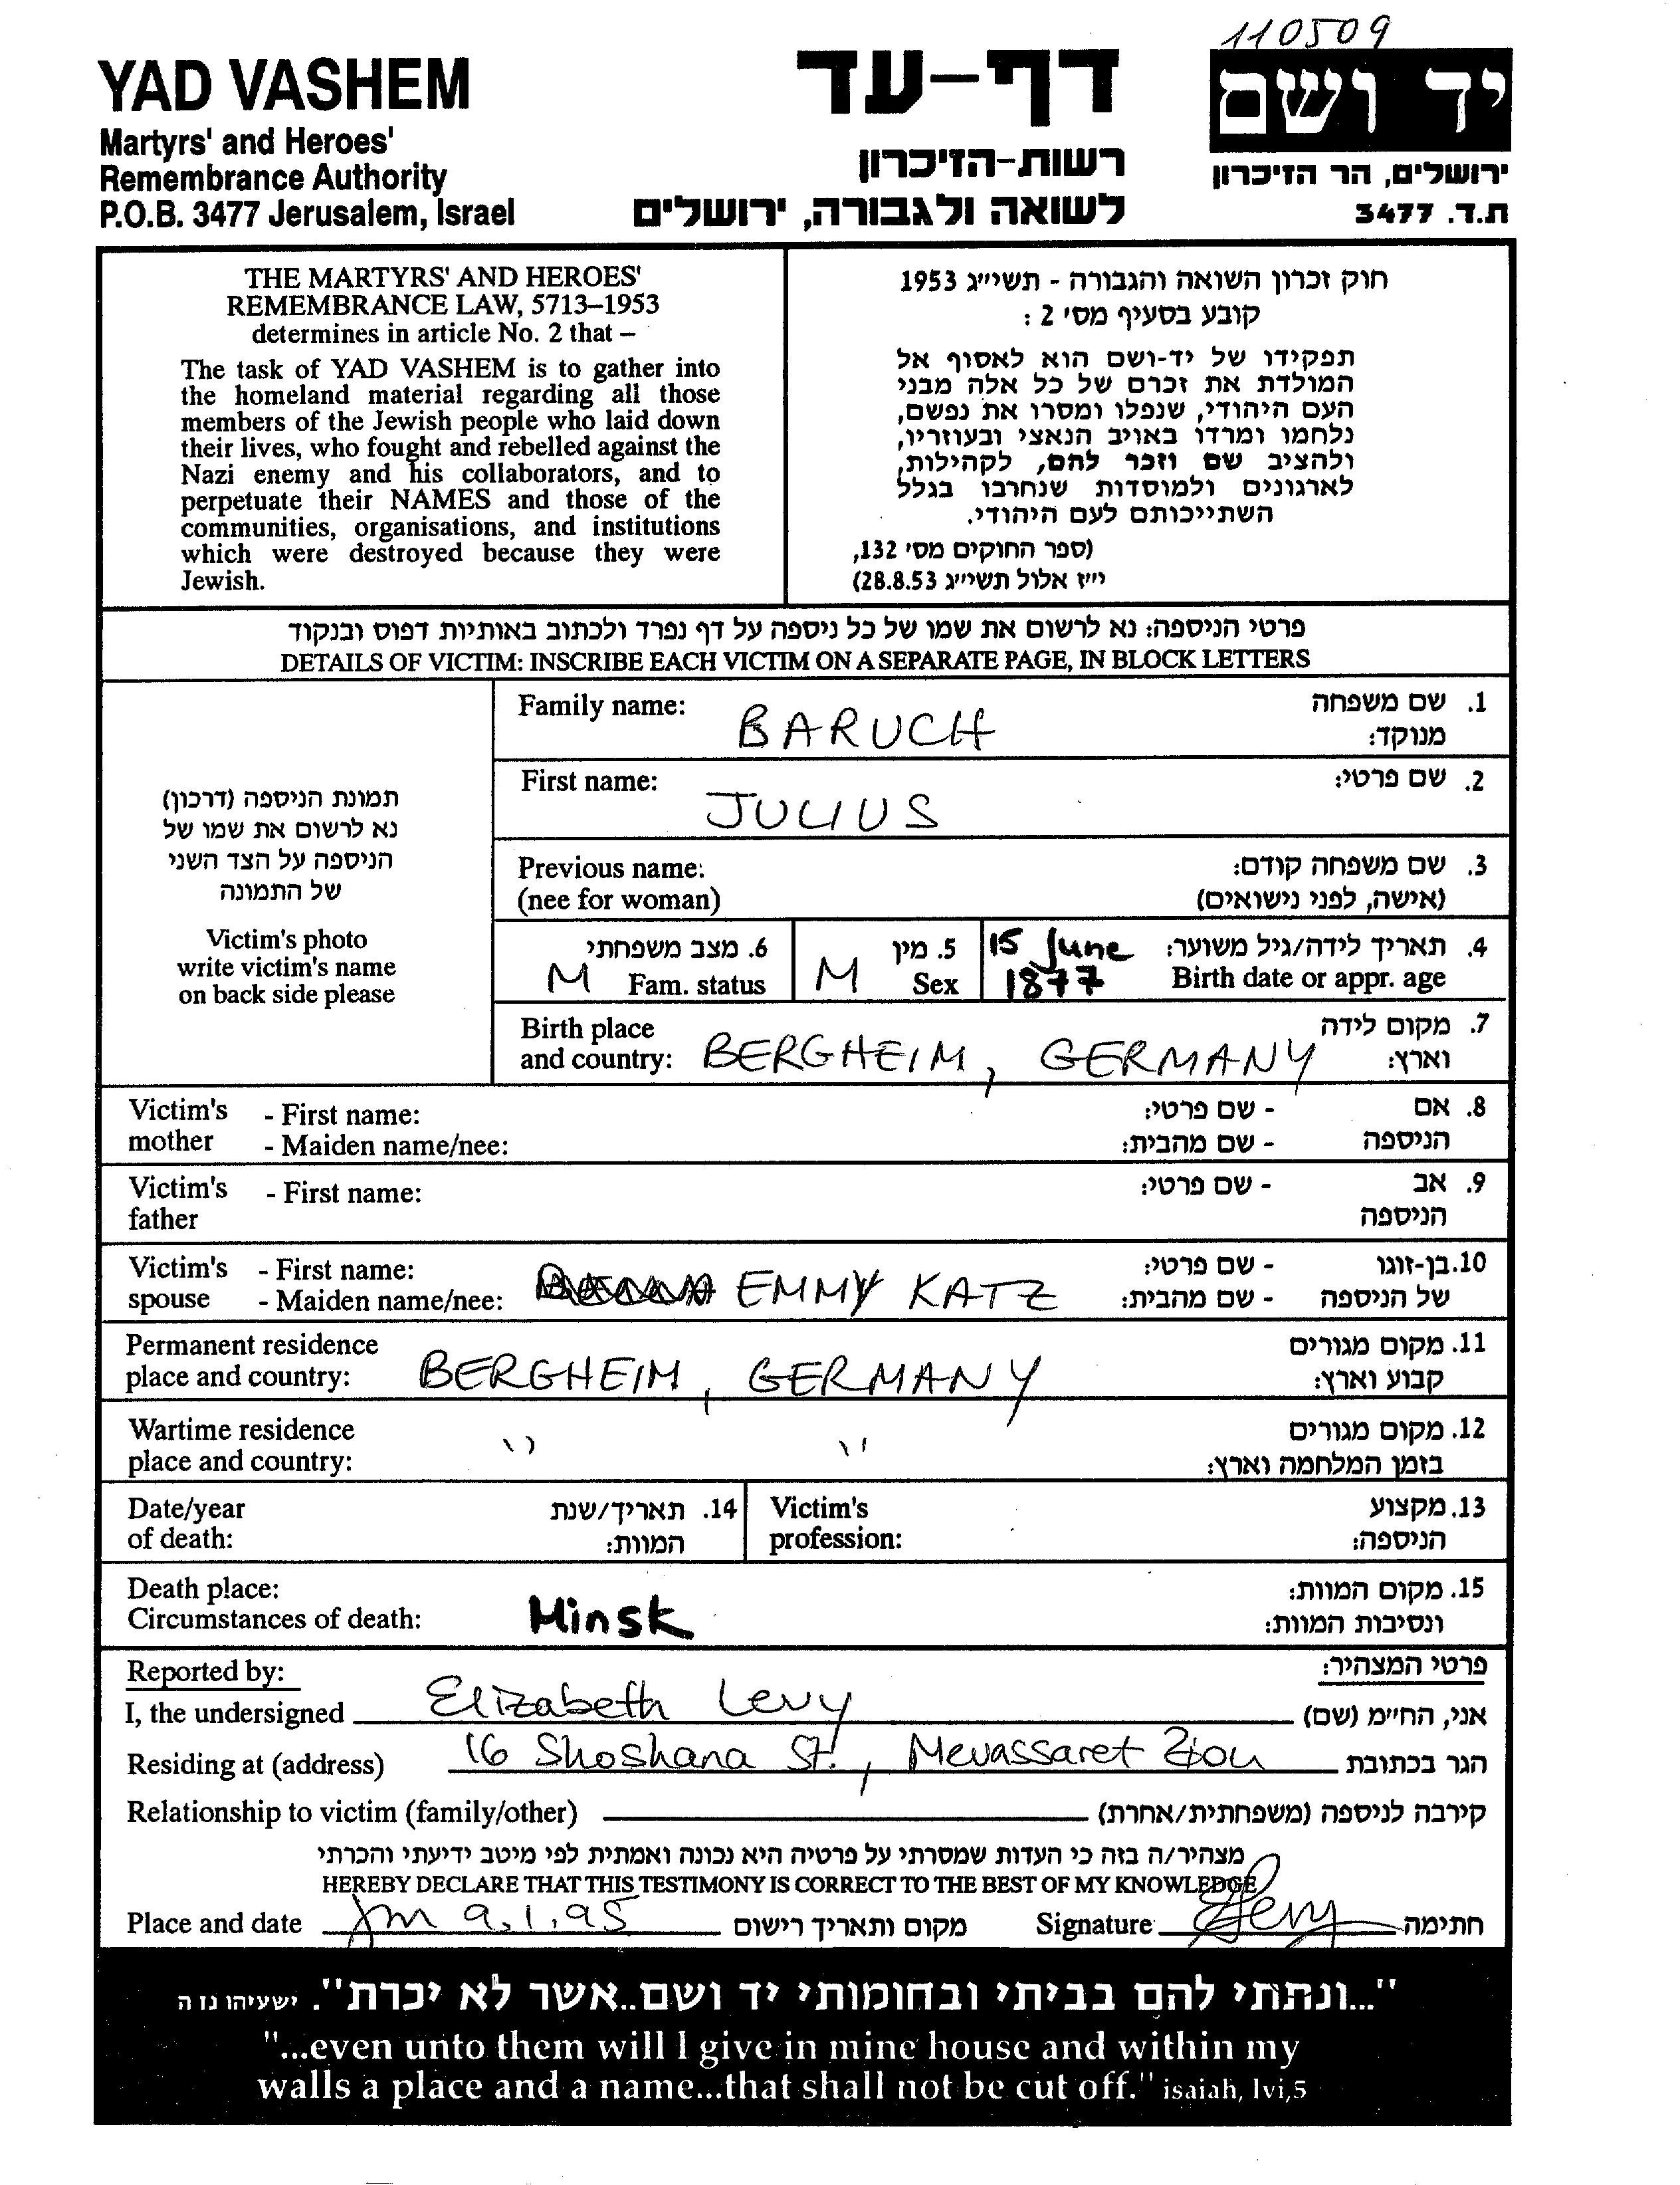 110509
YAD VASHEM
Martyrs' and Heroes'
Remembrance Authority
P.O.B. 3477 Jerusalem, Israel
דף-עד
רשות-הזיכרון
לשואה ולגבורה, ירושלים
יד ושם
ירושלים, הר הזיכרון
ת.ד. 3477
THE MARTYRS' AND HEROES'
REMEMBRANCE LAW, 5713–1953
determines in article No. 2 that –
The task of YAD VASHEM is to gather into
the homeland material regarding all those
members of the Jewish people who laid down
their lives, who fought and rebelled against the
Nazi enemy and his collaborators, and to
perpetuate their NAMES and those of the
communities, organisations, and institutions
which were destroyed because they were
Jewish.
חוק זכרון השואה והגבורה - תשי״ג 1953
קובע בסעיף מס׳ 2 :
תפקידו של יד-ושם הוא לאסוף אל
המולדת את זכרם של כל אלה מבני
העם היהודי, שנפלו ומסרו את נפשם,
נלחמו ומרדו באויב הנאצי ובעוזריו,
ולהציב שם וזכר להם, לקהילות,
לארגונים ולמוסדות שנחרבו בגלל
השתייכותם לעם היהודי.
(ספר החוקים מס׳ 132,
י״ז אלול תשי״ג 28.8.53)
פרטי הניספה: נא לרשום את שמו של כל ניספה על דף נפרד ולכתוב באותיות דפוס ובנקוד
DETAILS OF VICTIM: INSCRIBE EACH VICTIM ON A SEPARATE PAGE, IN BLOCK LETTERS
תמונת הניספה (דרכון)
נא לרשום את שמו של
הניספה על הצד השני
של התמונה
Victim's photo
write victim's name
on back side please
Family name: BARUCH 1. שם משפחה
מנוקד:
First name: JULIUS 2. שם פרטי:
Previous name: 3. שם משפחה קודם:
(nee for woman) (אישה, לפני נישואים)
6. מצב משפחתי 5. מין 15 June 4. תאריך לידה/גיל משוער:
M Fam. status M Sex 1877 Birth date or appr. age
Birth place 7. מקום לידה
and country: BERGHEIM, GERMANY וארץ:
Victim's - First name: - שם פרטי: 8. אם
mother - Maiden name/nee: - שם מהבית: הניספה
Victim's - First name: - שם פרטי: 9. אב
father הניספה
Victim's - First name: - שם פרטי: 10. בן-זוגו
spouse - Maiden name/nee: EMMY KATZ - שם מהבית: של הניספה
Permanent residence 11. מקום מגורים
place and country: BERGHEIM, GERMANY קבוע וארץ:
Wartime residence " " 12. מקום מגורים
place and country: בזמן המלחמה וארץ:
Date/year 14. תאריך/שנת Victim's 13. מקצוע
of death: המוות: profession: הניספה:
Death place: 15. מקום המוות:
Circumstances of death: Minsk ונסיבות המוות:
Reported by: פרטי המצהיר:
I, the undersigned Elizabeth Levy אני, החי״מ (שם)
Residing at (address) 16 Shoshana St., Mevassaret Zion הגר בכתובת
Relationship to victim (family/other) קירבה לניספה (משפחתית/אחרת)
מצהיר/ה בזה כי העדות שמסרתי על פרטיה היא נכונה ואמתית לפי מיטב ידיעתי והכרתי
HEREBY DECLARE THAT THIS TESTIMONY IS CORRECT TO THE BEST OF MY KNOWLEDGE
Place and date 9.1.95 מקום ותאריך רישום Signature Levy חתימה
"...ונתתי להם בביתי ובחומותי יד ושם..אשר לא יכרת". ישעיהו נז ה
"...even unto them will I give in mine house and within my
walls a place and a name...that shall not be cut off." isaiah, lvi,5